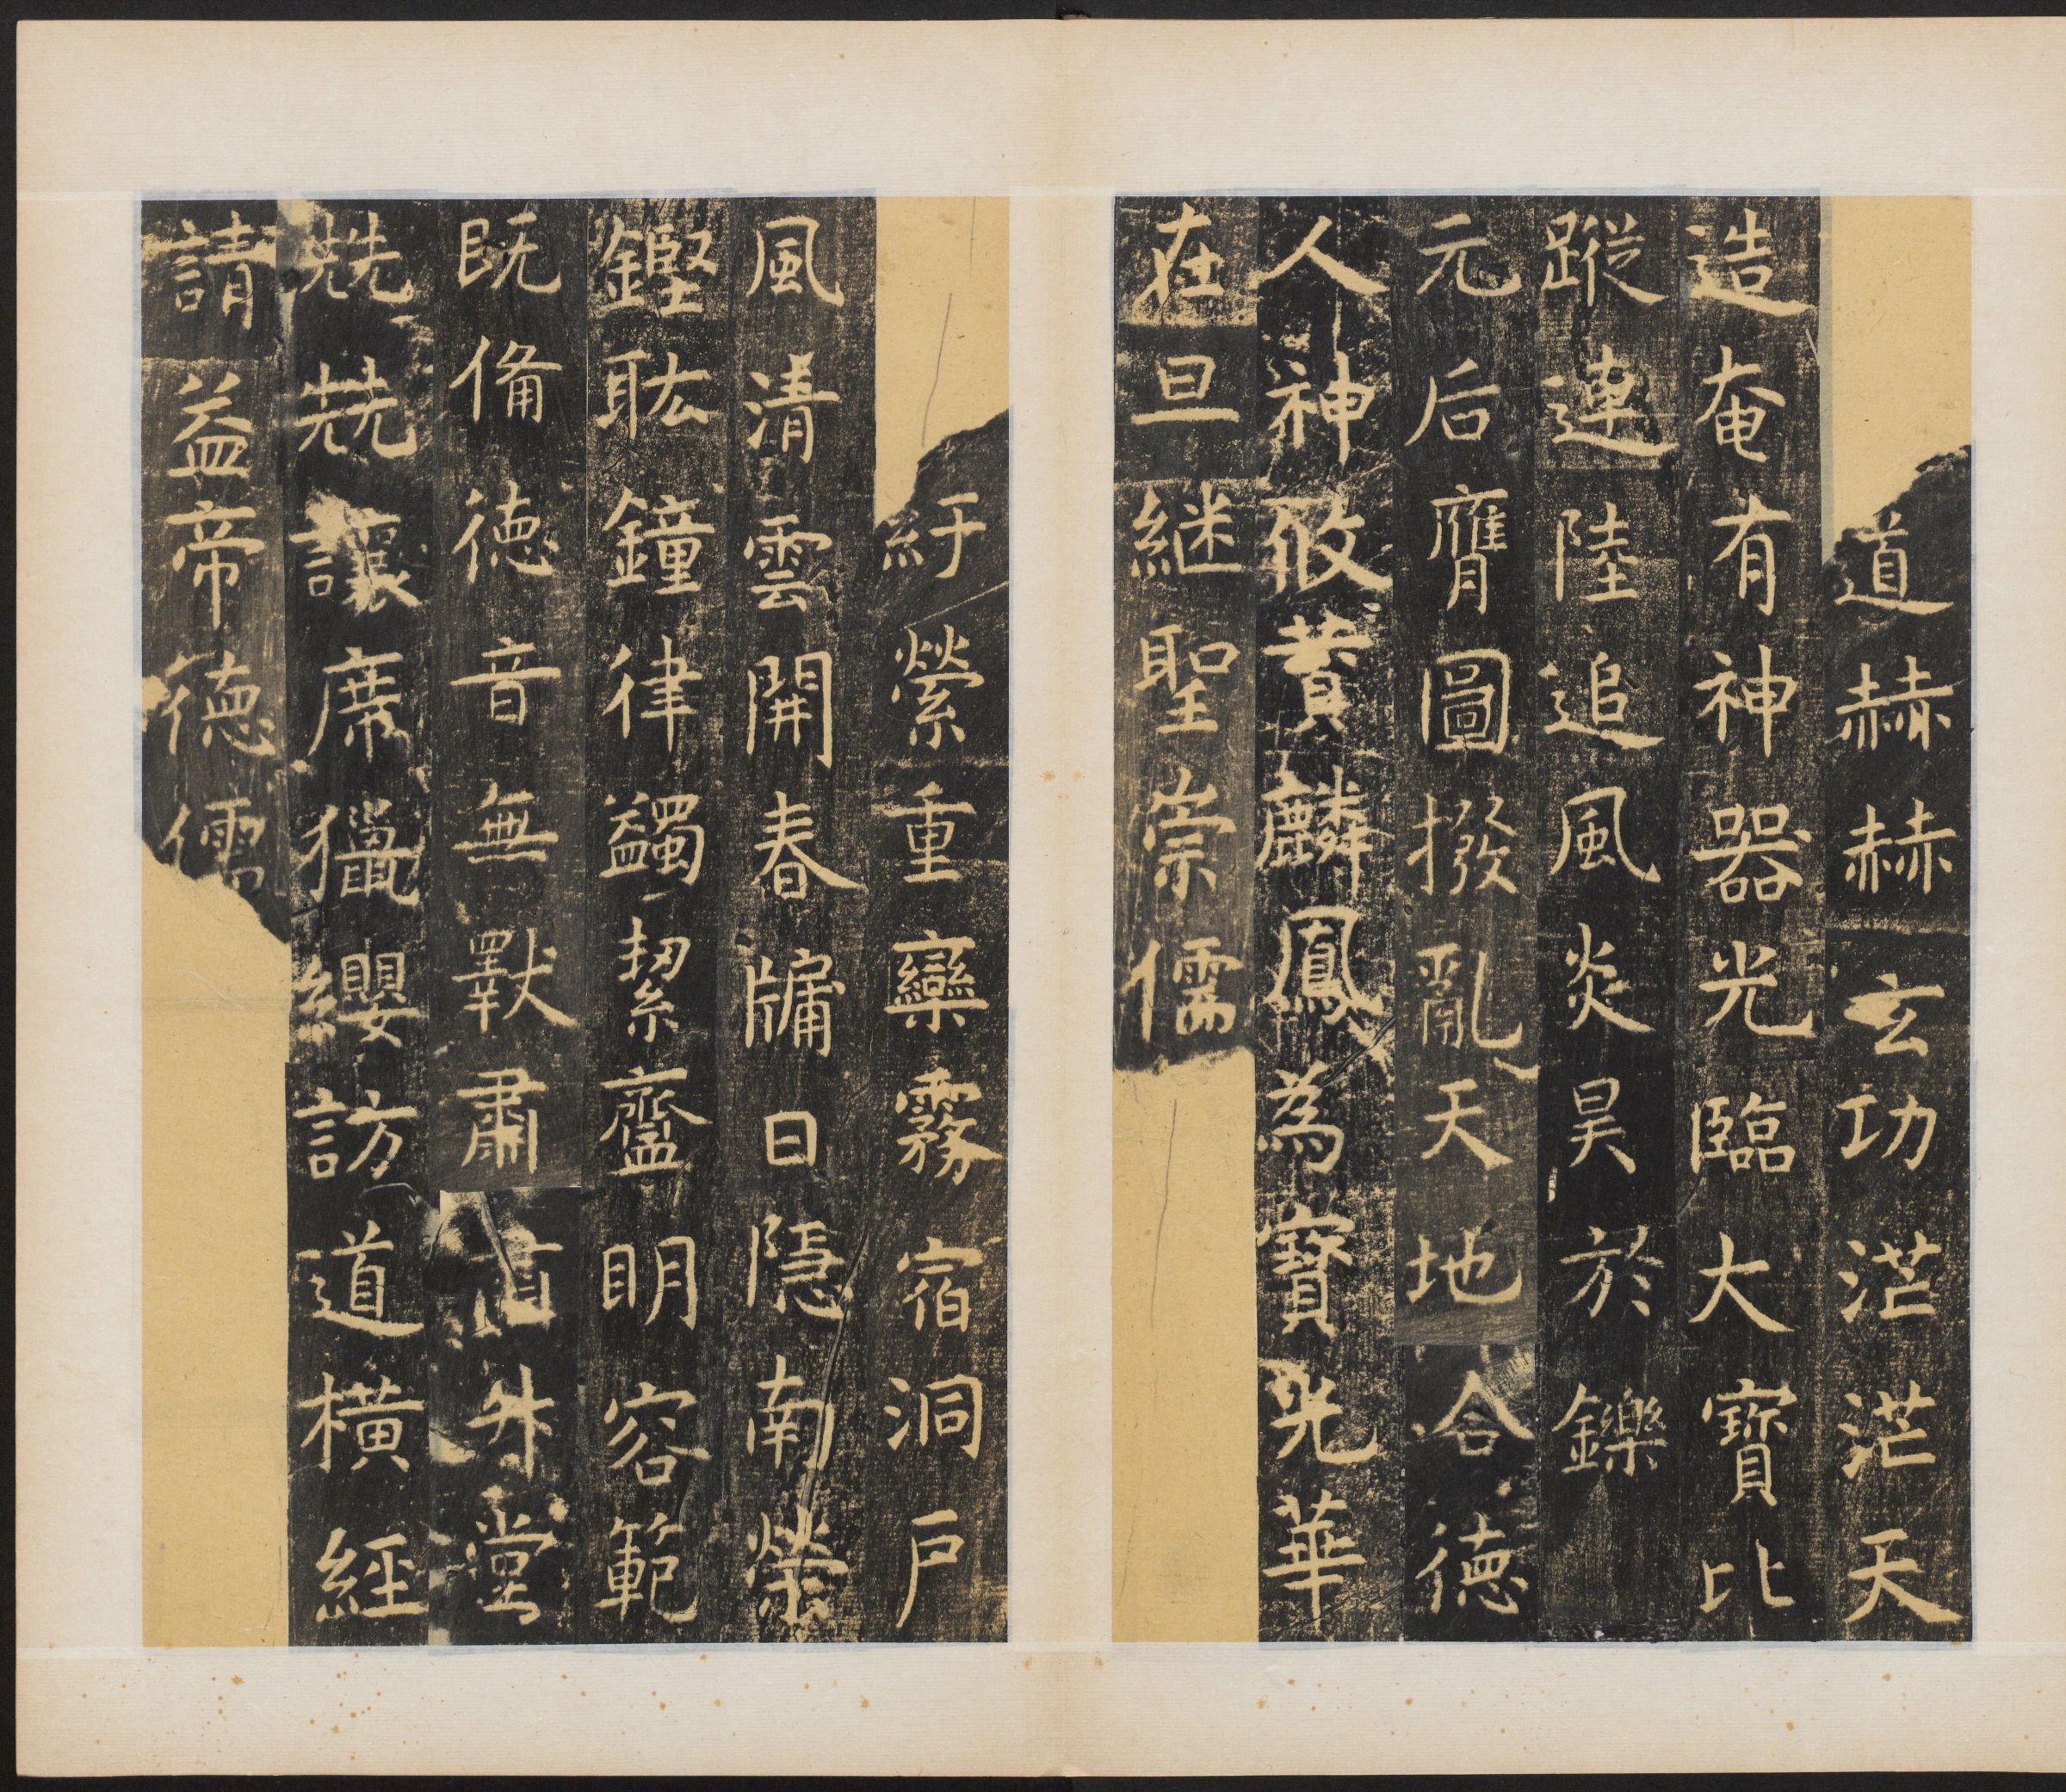 道赫赫玄功茫茫天
造奄有神器光臨大寶比
蹤連陸追風炎昊於鑠
元后膺圖撥亂天地合德
人神攸賛麟鳳為寶光華
在旦继聖崇儒
紆縈重欒霧宿洞戶
風清雲開春牖日隱南榮
鏗耾鐘律蠲絜齍明容範
既俻德音無斁肅 升堂
兟兟讓席獵纓訪道橫經
請益帝德儒